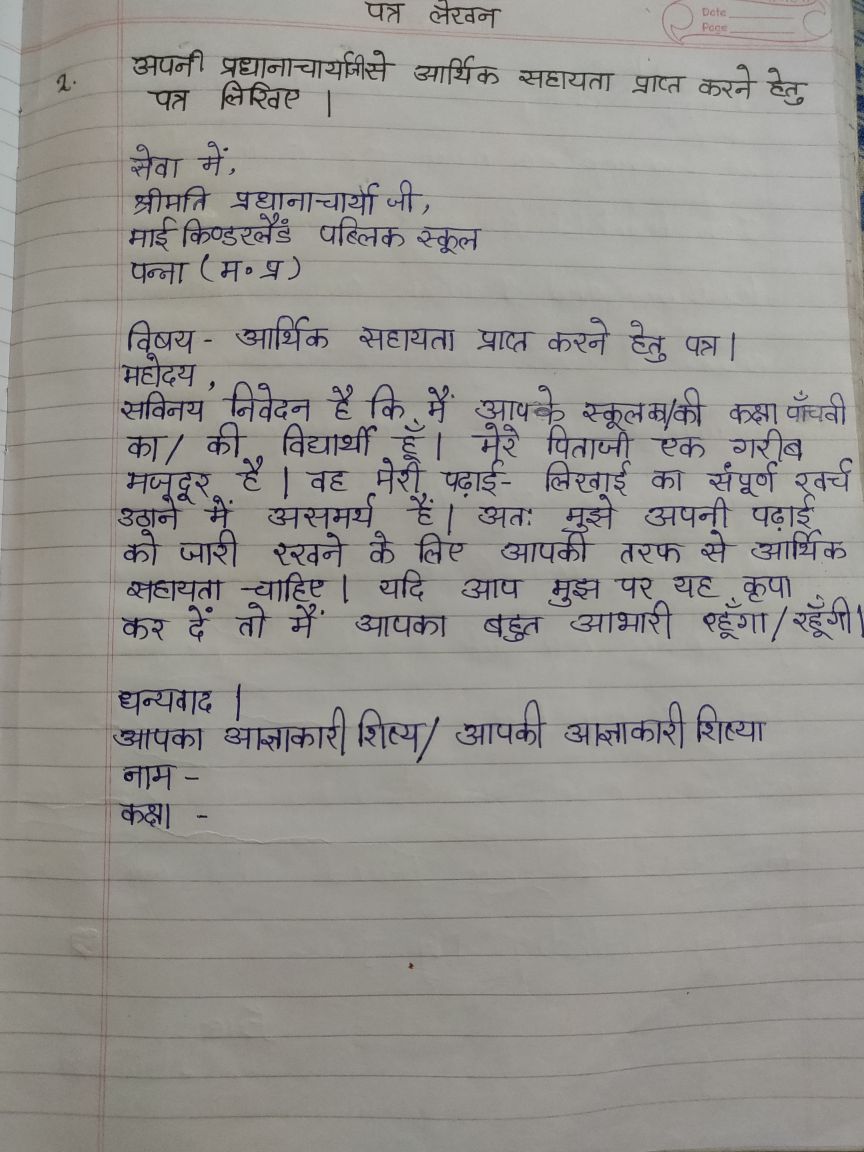 पत्र लेखन
Date
Page
2. अपनी प्रधानाचार्याजीसे आर्थिक सहायता प्राप्त करने हेतु
पत्र लिखिए |
सेवा में,
श्रीमति प्रधानाचार्या जी,
माई किण्डरलैंड पब्लिक स्कूल
पन्ना (म॰ प्र)
विषय - आर्थिक सहायता प्राप्त करने हेतु पत्र |
महोदय,
सविनय निवेदन है कि मैं आपके स्कूल का/की कक्षा पाँचवी
का/ की विद्यार्थी हूँ | मेरे पिताजी एक गरीब
मजदूर है | वह मेरी पढ़ाई- लिखाई का संपूर्ण खर्च
उठाने में असमर्थ हैं | अतः मुझे अपनी पढ़ाई
को जारी रखने के लिए आपकी तरफ से आर्थिक
सहायता चाहिए | यदि आप मुझ पर यह कृपा
कर दें तो मैं आपका बहुत आभारी रहूँगा/रहूँगी|
धन्यवाद |
आपका आज्ञाकारी शिष्य/ आपकी आज्ञाकारी शिष्या
नाम -
कक्षा -